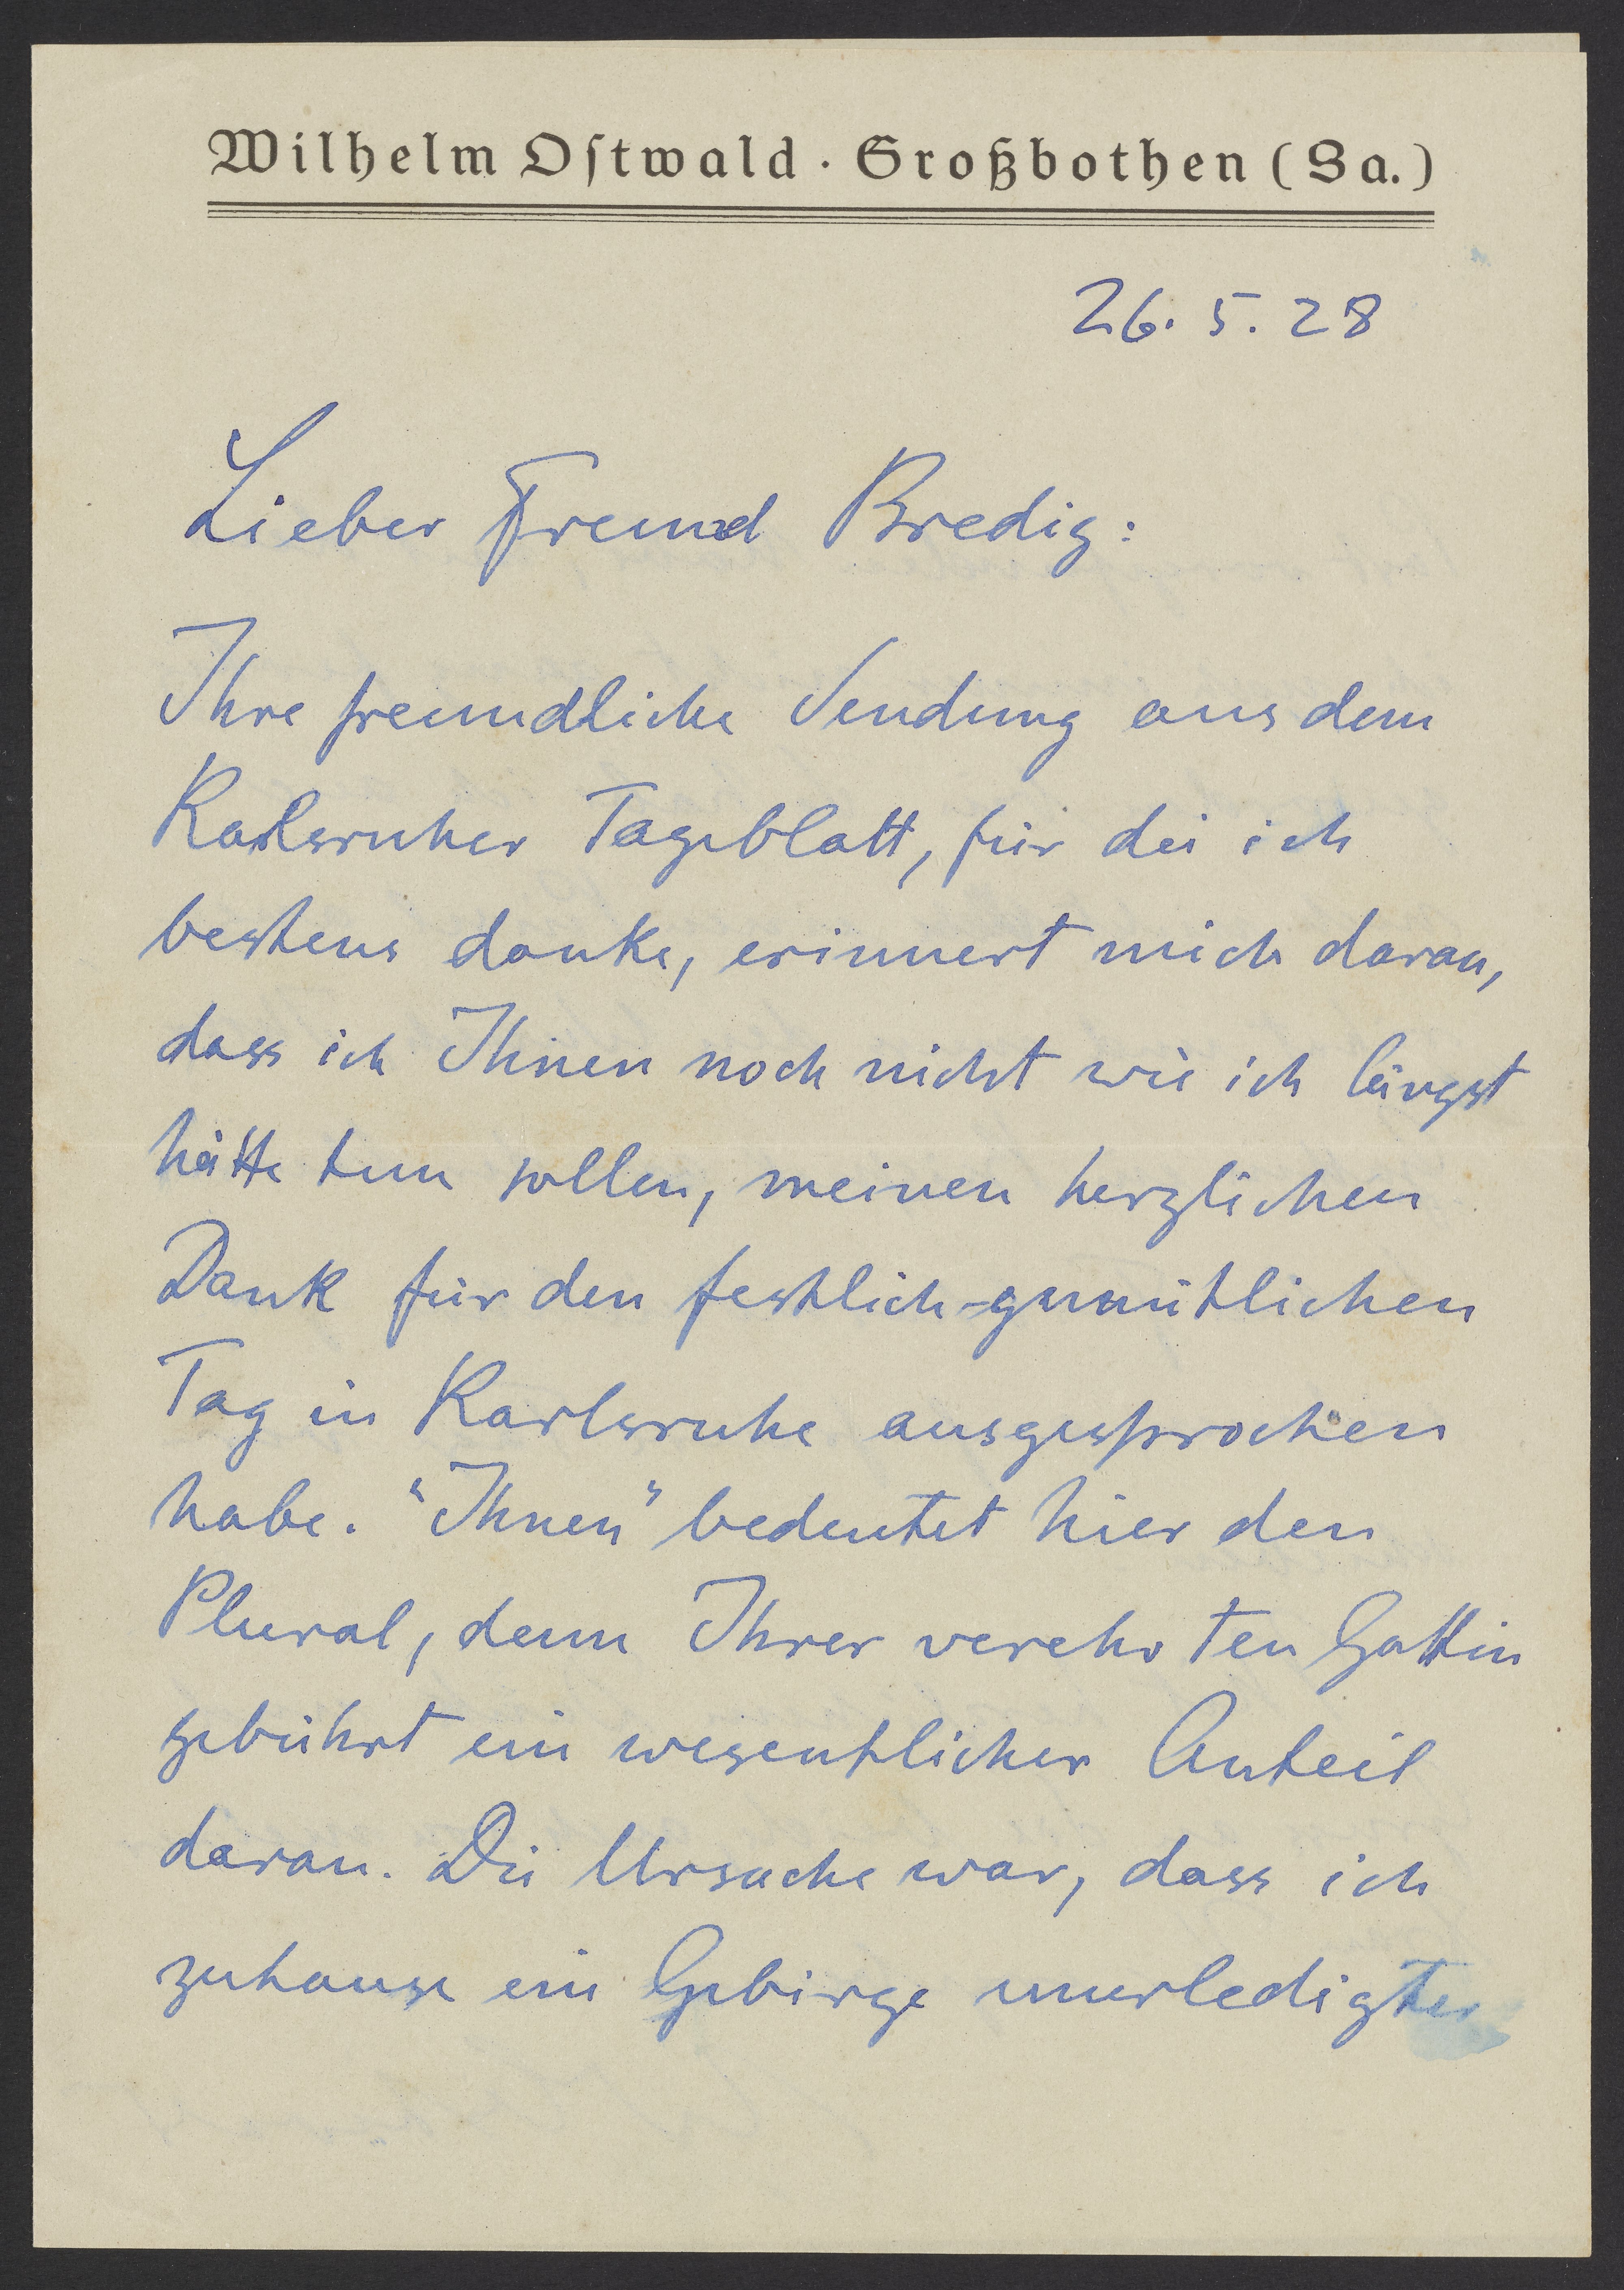 Wilhelm Ostwald · Großbothen (Sa.)
26. 5. 28
Lieber Freund Bredig:
Ihre freundliche Sendung aus dem
Karlsruher Tageblatt, für die ich
bestens danke, erinnert mich daran,
dass ich Ihnen noch nicht wie ich längst
hätte tun sollen, meinen herzlichen
Dank für den festlich-gemütlichen
Tag in Karlsruhe ausgesprochen
habe. "Ihnen" bedeutet hier den
Plural, denn Ihrer verehrten Gattin
gebührt ein wesentlicher Anteil
daran. Die Ursache war, dass ich
zuhause ein Gebirge unerledigter